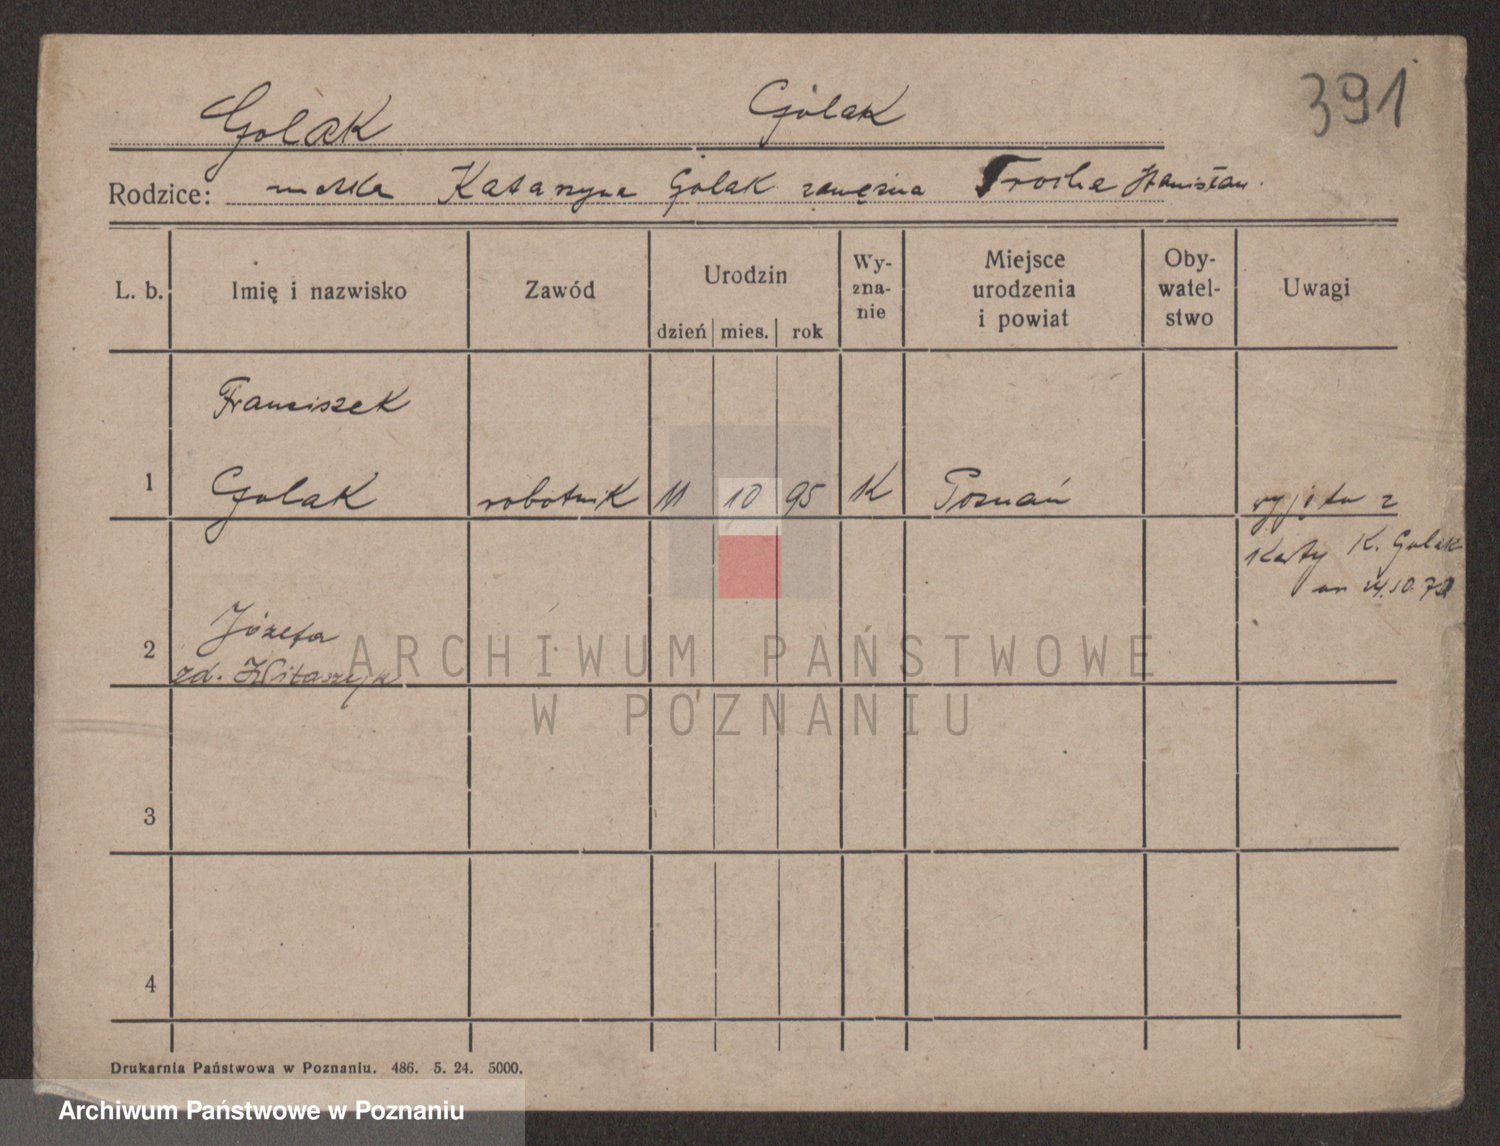 391
Golak Golak
Rodzice: matka Katarzyna Golak zamężna Trocha Stanisław.
L. b. Imię i nazwisko Zawód Urodzin dzień mies. rok Wy-zna-nie Miejsce urodzenia i powiat Oby-watel-stwo Uwagi
Franciszek
1 Golak robotnik 11 10 95 K Poznań wyjęto z
Karty K. Golak
24.10.
Józefa
2 zd. Witaszyk
3
4
ARCHIWUM PAŃSTWOWE
W POZNANIU
Drukarnia Państwowa w Poznaniu. 486. 5. 24. 5000.
Archiwum Państwowe w Poznaniu